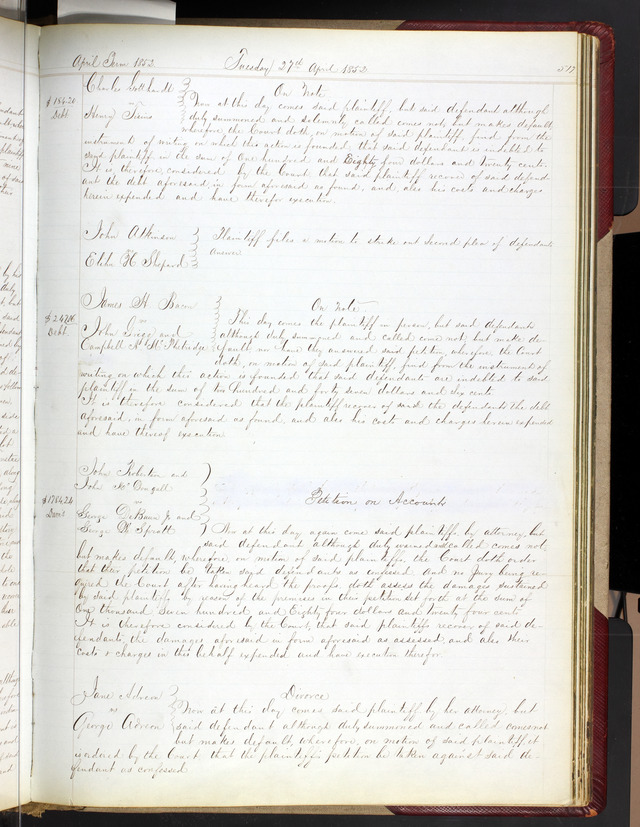 April Term 1852 Tuesday 27th April 1852 517
Charles
vs
Henry
$184.20
Debt
On Note
Now at this day comes said plaintiff, but said defendant although
duly summoned and solemnly called comes not, but makes default,
wherefore the Court doth, on motion of said plaintiff, find from the
instrument of writing on which this action is founded, that said defendant is indebted to
said plaintiff in the sum of One hundred and Eighty four dollars and twenty cents.
It is therefore considered by the Court that said plaintiff recover of said defend-
ant the debt aforesaid in form aforesaid as found, and also his costs and charges
herein expended and have therefor execution.
John Atkinson
vs
Elihu H Shepard
Plaintiff files a motion to strike out second plea of defendants
answer
James H Bacon
vs
John and
Campbell
Debt
On Note
This day comes the plaintiff in person, but said defendants
although duly summoned and called come not, but make de-
fault nor have they answered said petition, wherefore the Court
doth, on motion of said plaintiff, find from the instrument of
writing on which this action is founded that said defendants are indebted to said
plaintiff in the sum of two hundred and forty seven dollars and six cents
It is therefore considered that the plaintiff recover of said the defendants the debt
aforesaid, in form aforesaid as found, and also his costs and charges herein expended
and have thereof execution
John and
John McDougall
vs
George Jr and
George W Spratt
$1784.24
Petition on Accounts
Now at this day again come said plaintiffs by attorney, but
said defendants although duly summoned & called comes not,
but makes default, wherefore on motion of said plaintiffs, the Court doth order
that their petition be taken against said defendants as confessed. And no jury being re-
quired the Court after having heard the proofs doth assess the damages sustained
by said plaintiffs by reason of the premises in their petition set forth at the sum of
One thousand Seven hundred and Eighty four dollars and twenty four cents
It is therefore considered by the Court, that said plaintiffs recover of said de-
fendants, the damages aforesaid in form aforesaid as assessed, and also their
costs & charges in this behalf expended and have execution therefor.
Jane Adreon
vs
George Adreon
Divorce
Now at this day comes said plaintiff by her attorney, but
said defendant although duly summoned and called comes not
but makes default, wherefore, on motion of said plaintiff, it
is ordered by the Court that the plaintiff's petition be taken against said de-
fendant as confessed